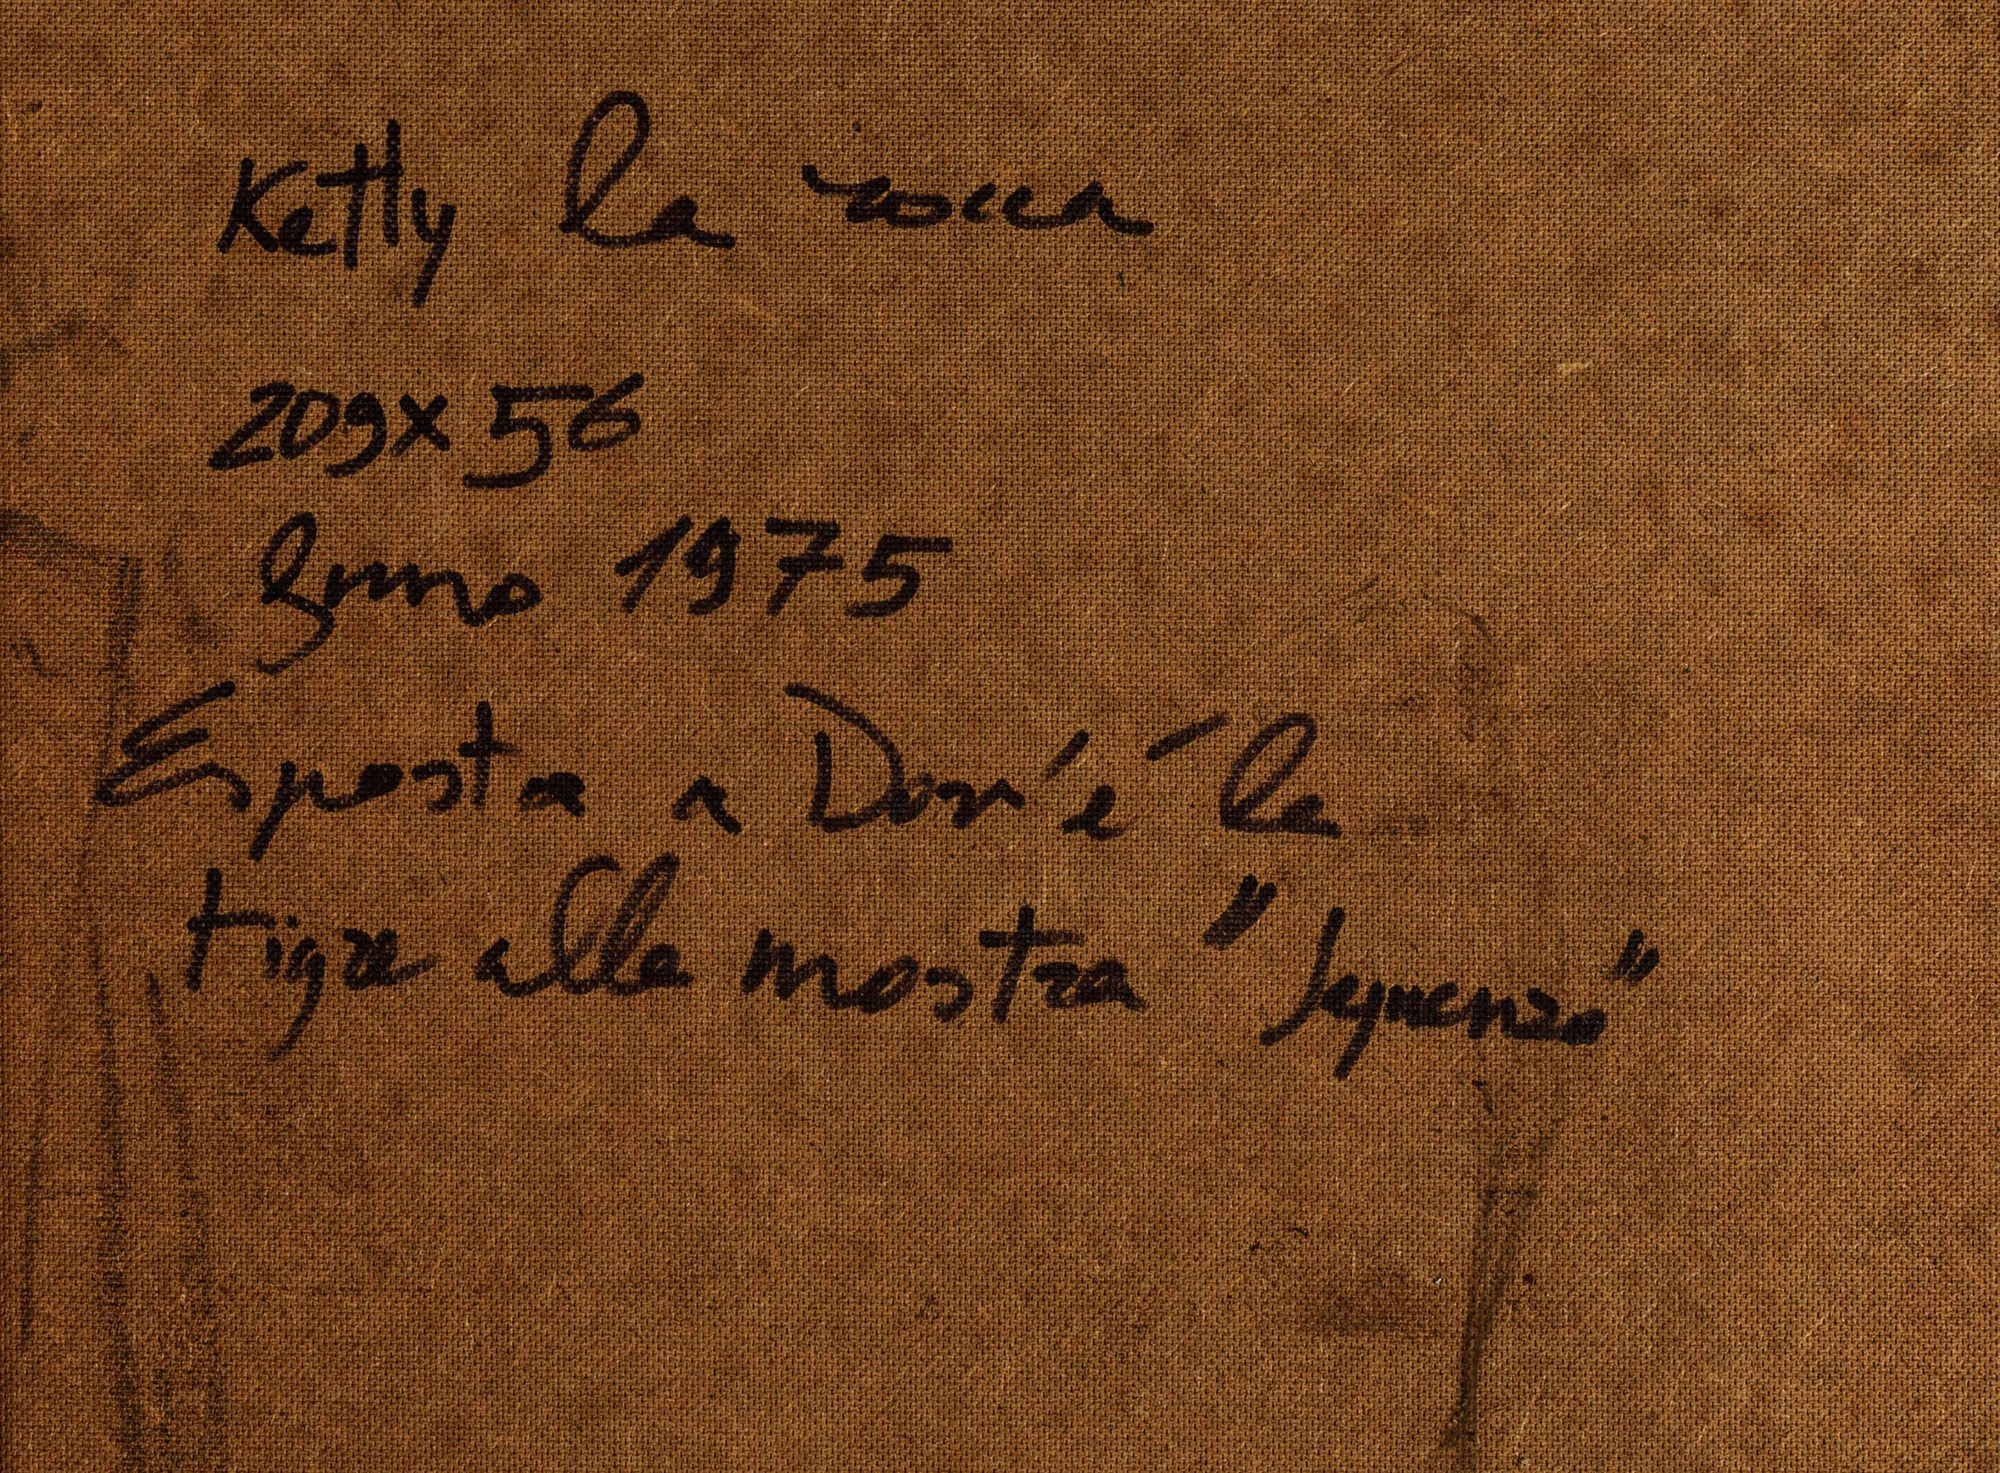 Ketty la rocca
209x56
Anno 1975
Esposta a Dov'é la
tigre alla mostra